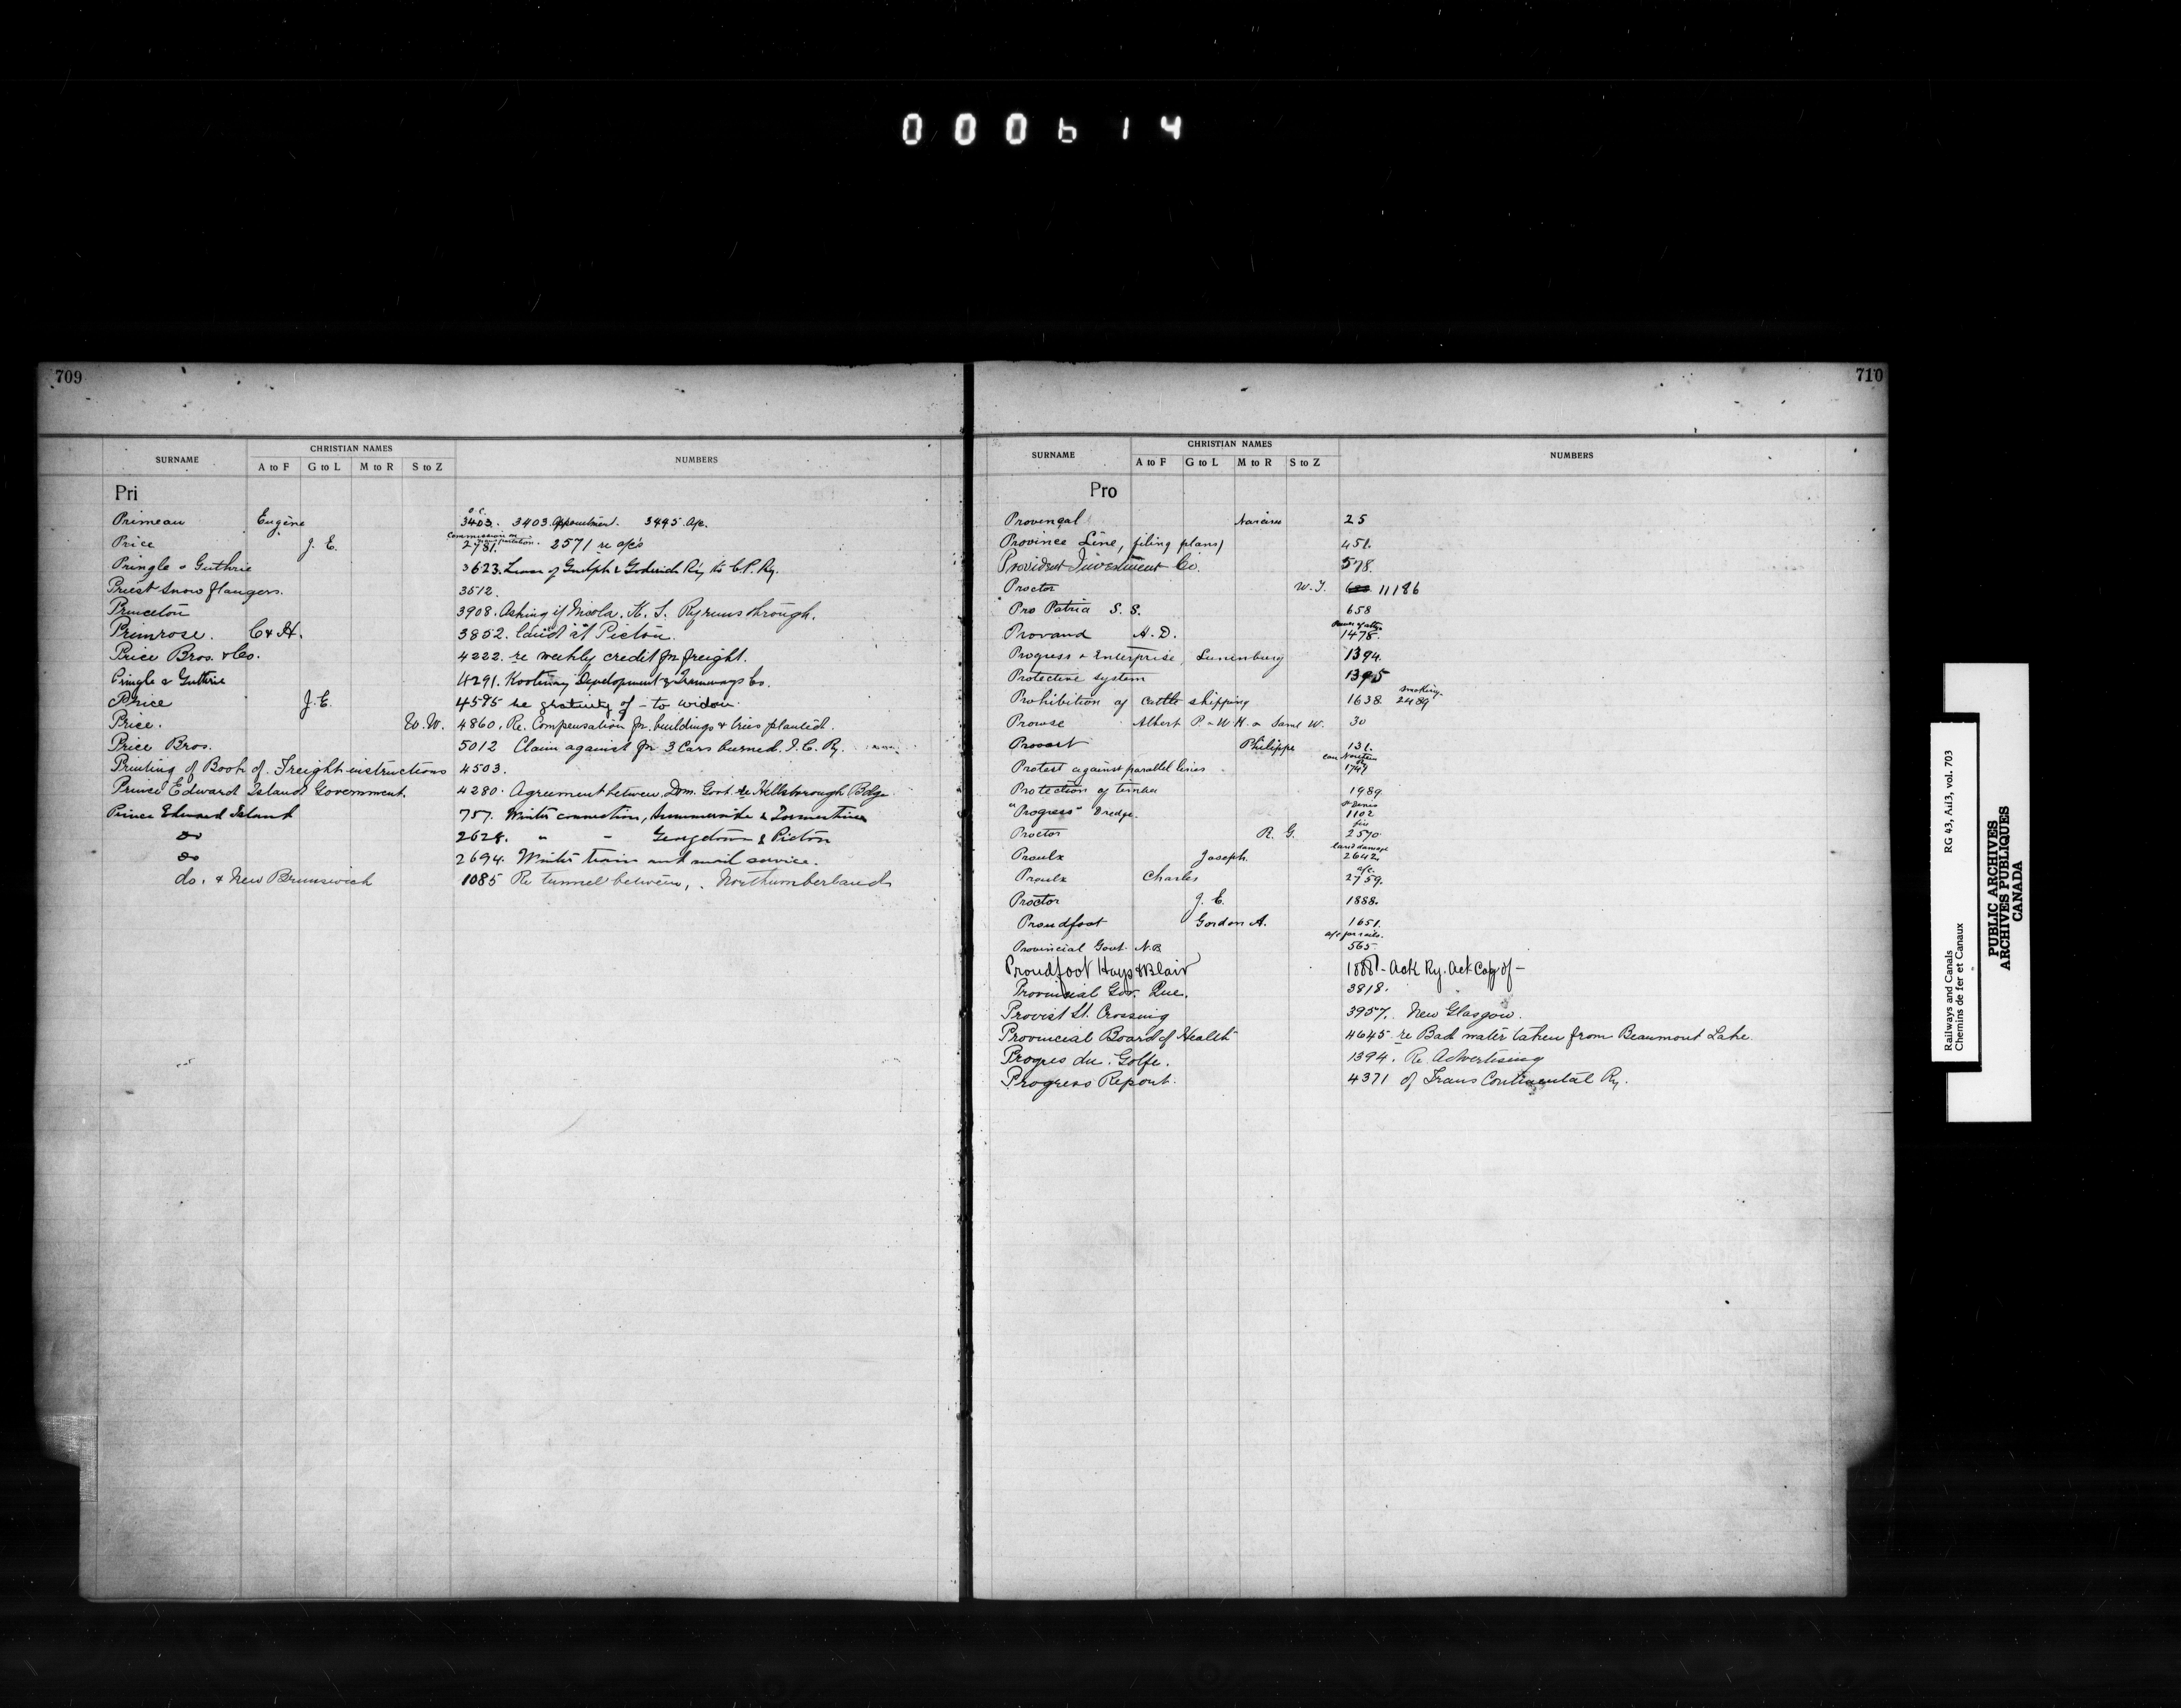 000614
709
CHRISTIAN NAMES
SURNAME A to F G to L M to R S to Z NUMBERS
Pri
Primeau Eugène 3403. 3403 Appointment. 3495 a/c.
Price J. E. 2781. 2571 re a/c's
Pringle & Guthrie 3623. Lease of Guelph & Goderich Ry to C.P. Ry.
Priest Snow flangers. 3512.
Princeton 3908. Asking if Nicola, K. S. Ry runs through.
Primrose. C & H. 3852. land at Pictou.
Price Bros. & Co. 4222. re weekly credit for freight.
Pringle & Guthrie 4291. Kootenay Development & Tramways Co.
Price J. E. 4595 re gratuity of - to widow.
Price. W. W. 4860. Re. Compensation for buildings & trees planted.
Price Bros. 5012 Claim against for 3 Cars burned. I. C. Ry.
Printing of Book of Freight instructions 4503.
Prince Edward Island Government. 4280. Agreement between Dom. Govt. re Hillsborough Bdge
Prince Edward Island 757. Winter connection, Summerside & Tormentine
do 2628. " " Georgetown & Pictou
do 2694. Winter train and mail service.
do. & New Brunswick 1085 Re tunnel between, . Northumberland
710
CHRISTIAN NAMES
SURNAME A to F G to L M to R S to Z NUMBERS
Pro
Provençal Narcisse 25
Province Line, filing plans) 451.
Provident Investment Co. 578.
Proctor 11186
Pro Patria S. S. 658
Power of atty.
Provand A. D. 1478.
Progress & Enterprise, Lunenburg 1394.
Protective system 1395
smoking.
Prohibition of Cattle shipping 1638. 2489
Prowse Albert P. & W. H. & Saml W. 30
Philippe 131.
Protest against parallel lines 1747
Protection of timber 1989.
St Denis
"Progress" Dredge. 1102
Proctor R. G. 2570.
land damage
Proulx Joseph. 2642.
a/c.
Proulx Charles 2759.
Proctor J. E. 1888.
Proudfoot Gordon A. 1651.
a/c for rails.
Provincial Govt. N.B. 565.
Proudfoot Hays & Blair 1888 - Ack Ry. Act Copy of -
Provincial Gov. Que. 3818.
Provist St. Crossing 3957. New Glasgow.
Provincial Board of Health 4645 re Bad water taken from Beaumont Lake.
Progres du Golfe. 1394. Re. Advertising
Progress Report. 4371 of Trans Continental Ry.
Railways and Canals RG 43, AII3, vol. 703
Chemins de fer et Canaux
PUBLIC ARCHIVES
ARCHIVES PUBLIQUES
CANADA